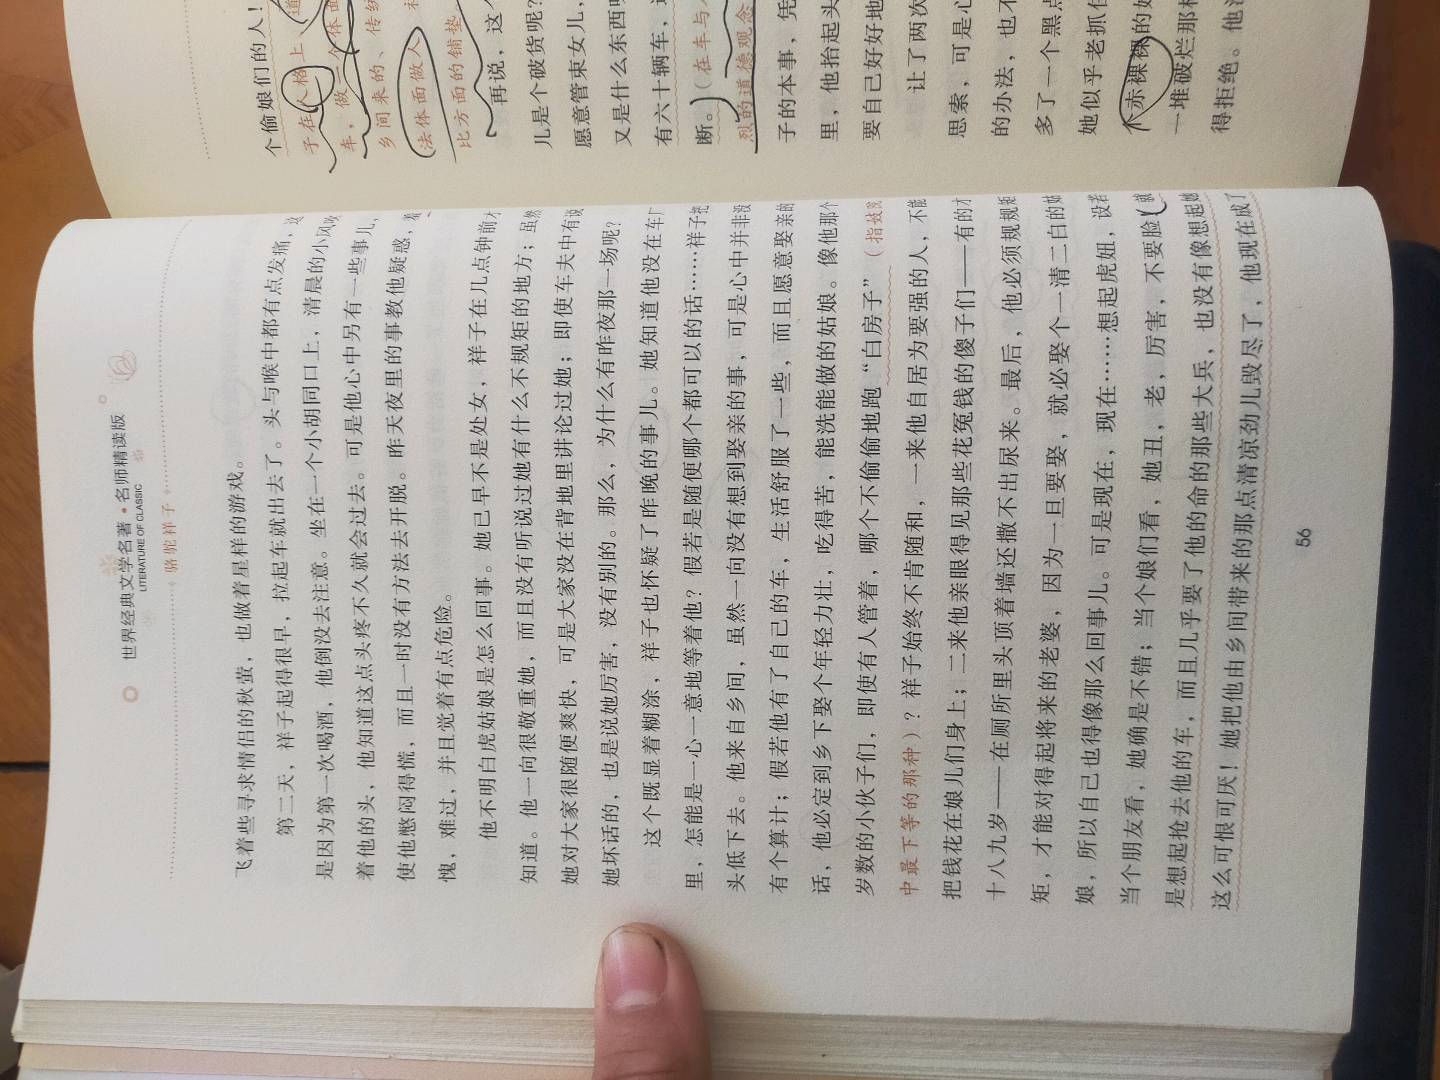 世界经典文学名著·名师精读版
LITERATURE OF CLASSIC
骆驼祥子
飞着些寻求情侣的秋萤，也做着星样的游戏。
第二天，祥子起得很早，拉起车就出去了。头与喉中都有点发痛，这
是因为第一次喝酒，他倒没去注意。坐在一个小胡同口上，清晨的小风吹
着他的头，他知道这点头疼不久就会过去。可是他心中另有一些事儿，
使他憋闷得慌，而且一时没有方法去开脱。昨天夜里的事教他疑惑，羞
愧，难过，并且觉着有点危险。
他不明白虎姑娘是怎么回事。她已早不是处女，祥子在几点钟前才
知道。他一向很敬重她，而且没有听说过她有什么不规矩的地方；虽然
她对大家很随便爽快，可是大家没在背地里讲论过她；即使车夫中有说
她坏话的，也是说她厉害，没有别的。那么，为什么有昨夜那一场呢？
这个既显着糊涂，祥子也怀疑了昨晚的事儿。她知道他没在车厂
里，怎能是一心一意地等着他？假若是随便哪个都可以的话……祥子把
头低下去。他来自乡间，虽然一向没有想到娶亲的事，可是心中并非没
有个算计；假若他有了自己的车，生活舒服了一些，而且愿意娶亲的
话，他必定到乡下娶个年轻力壮，吃得苦，能洗能做的姑娘。像他那个
岁数的小伙子们，即使有人管着，哪个不偷偷地跑“白房子”（指妓院
中最下等的那种）？祥子始终不肯随和，一来他自居为要强的人，不能
把钱花在娘儿们身上；二来他亲眼得见那些花冤钱的傻子们——有的才
十八九岁——在厕所里头顶着墙还撒不出尿来。最后，他必须规规矩
矩，才能对得起将来的老婆，因为一旦要娶，就必娶个一清二白的姑
娘，所以自己也得像那么回事儿。可是现在，现在……想起虎妞，设若
当个朋友看，她确是不错；当个娘们看，她丑，老，厉害，不要脸！就
是想起抢去他的车，而且几乎要了他的命的那些大兵，也没有像想起她
这么可恨可厌！她把他由乡间带来的那点清凉劲儿毁尽了，他现在成了
56
个偷娘们的人！
子在人格上、道
车，做一个体面
乡间来的、传统
法体面做人
比方面的铺垫
再说，这
儿是个破货呢？
愿意管束女儿，
又是什么东西
有六十辆车，
断。（在车与
烈的道德观念
子的本事，凭
里，他抬起头
要自己好好地
让了两次
思索，可是心
的办法，也不
多了一个黑点
她似乎老抓住
个赤裸裸的
一堆破烂那样
得拒绝。他